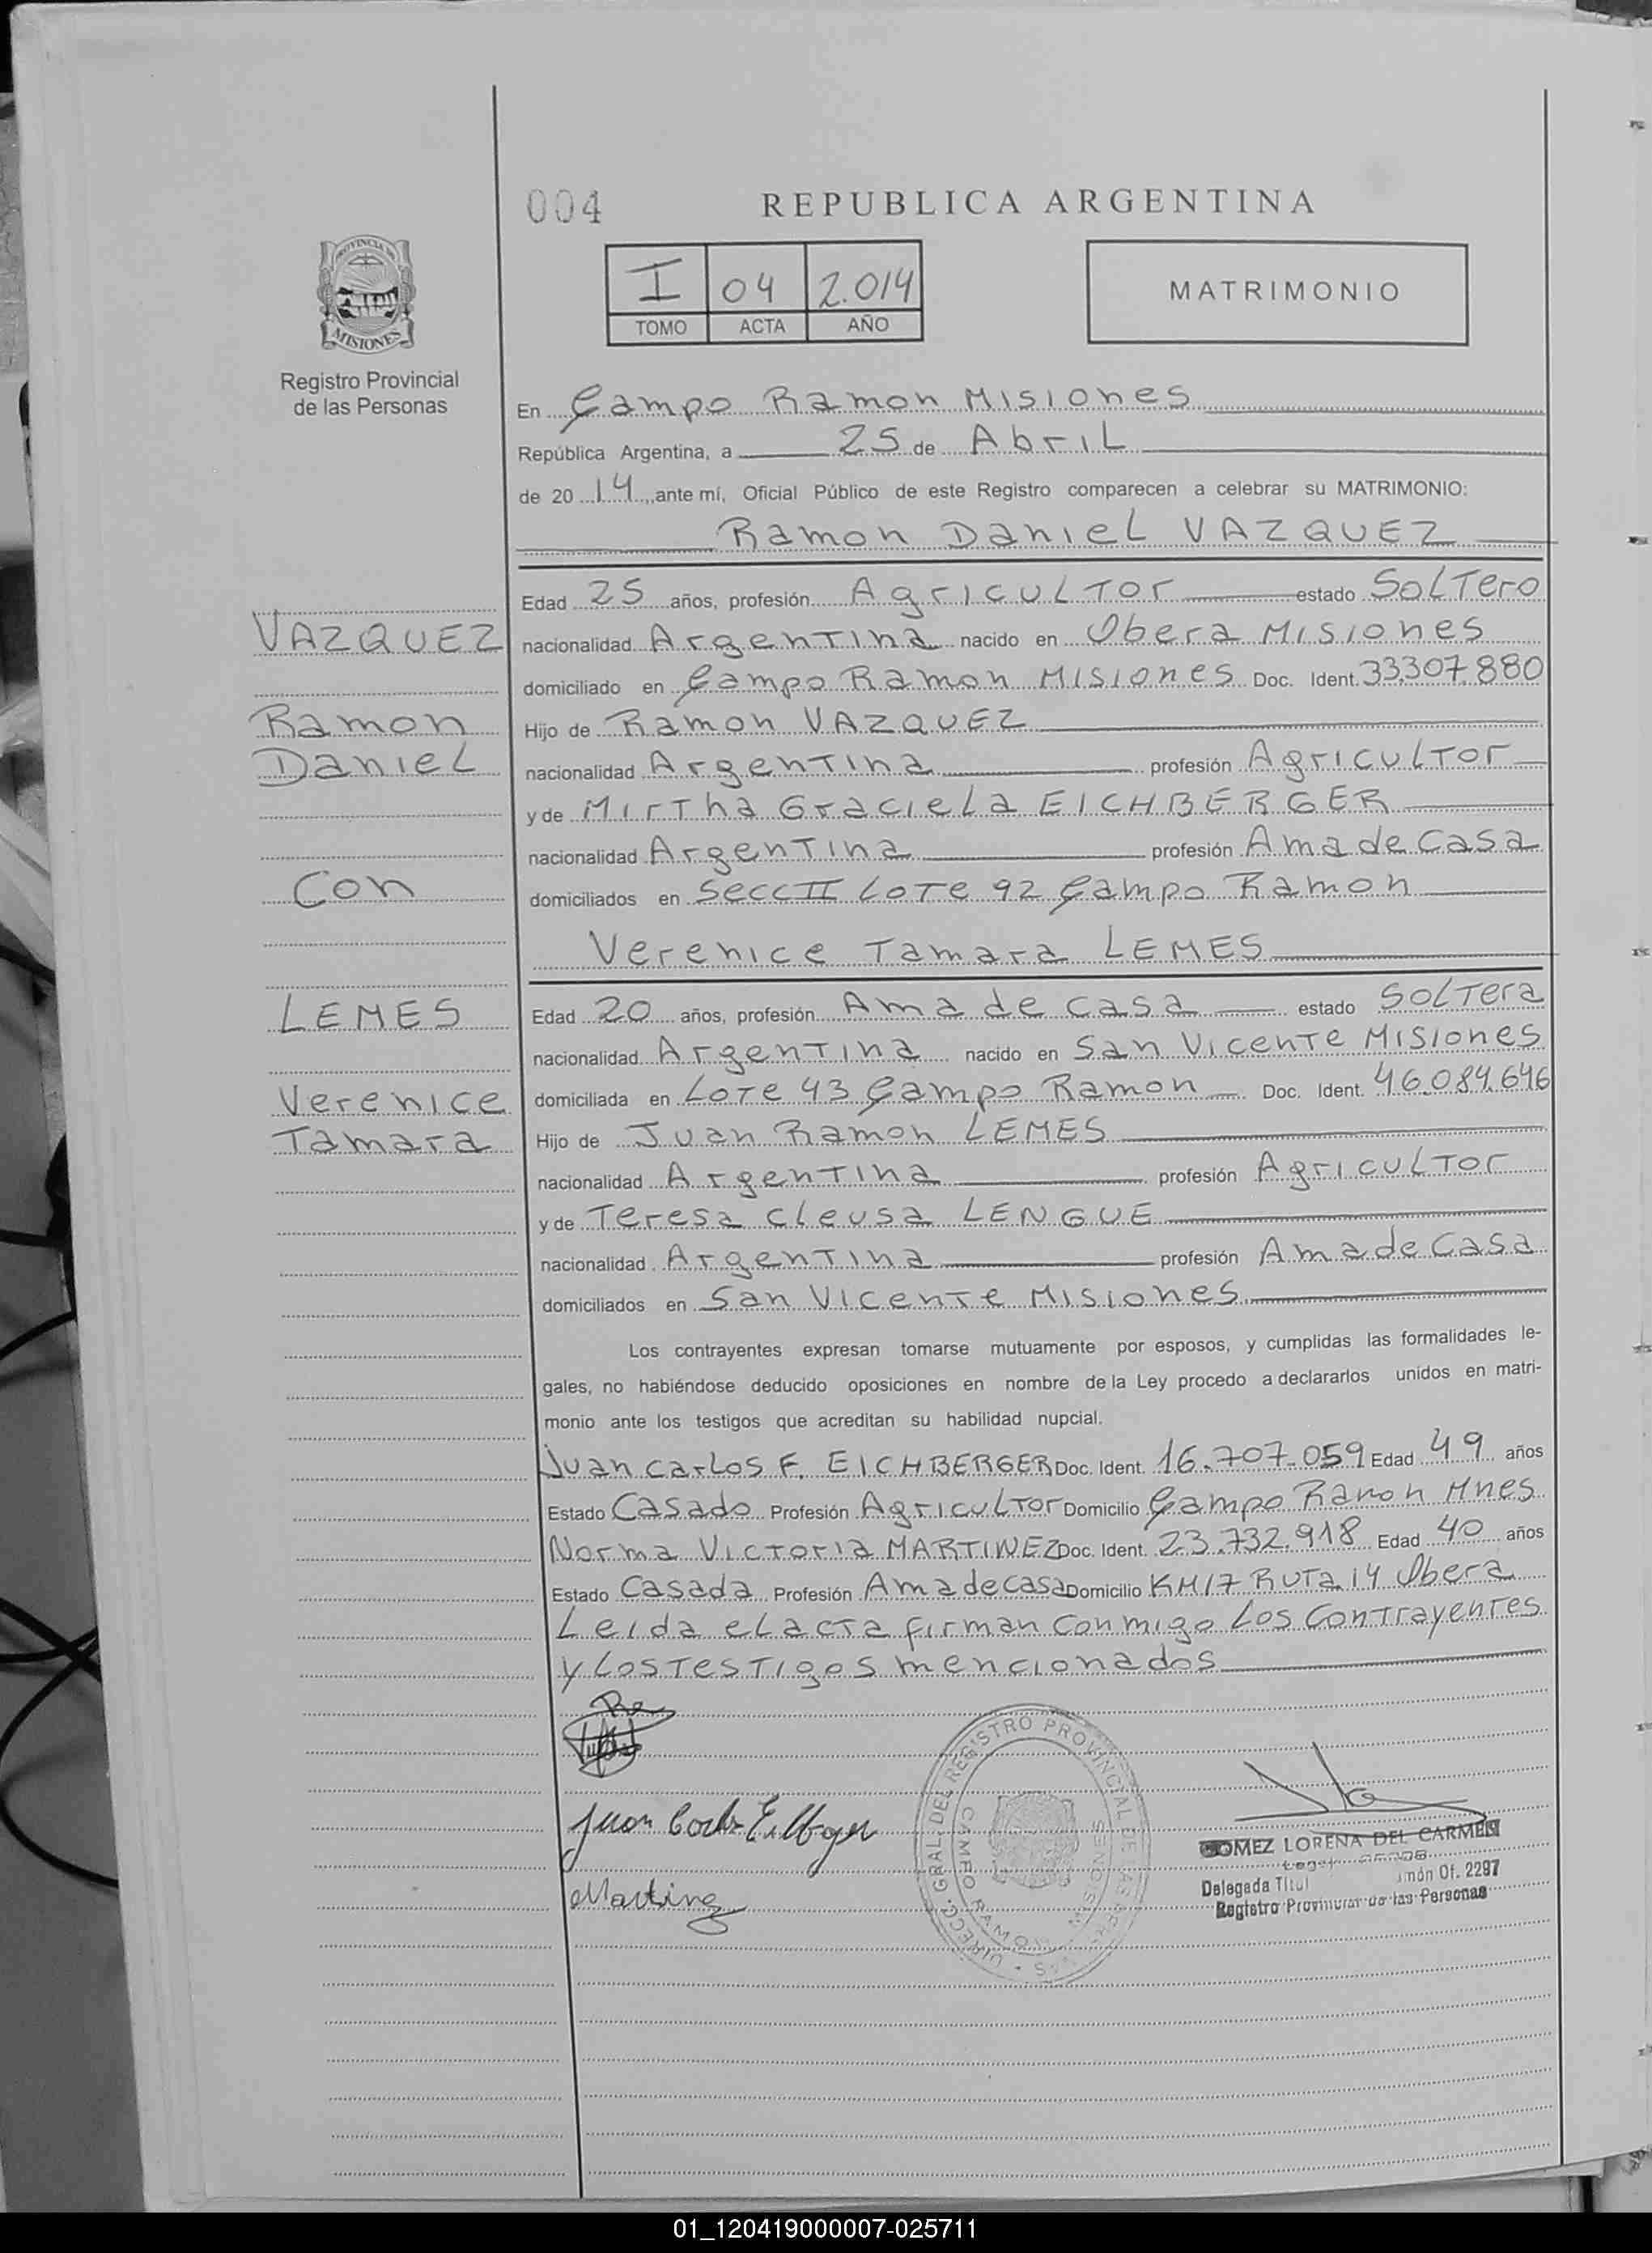 004
REPUBLICA ARGENTINA
PROVINCIA DE
MISIONES
Registro Provincial
de las Personas
I 04 2.014
TOMO ACTA AÑO
MATRIMONIO
En Campo Ramon Misiones
República Argentina, a 25 de Abril
de 2014, ante mí, Oficial Público de este Registro comparecen a celebrar su MATRIMONIO:
Ramon Daniel VAZQUEZ
VAZQUEZ
Ramon
Daniel
Con
LEMES
Verenice
Tamara
Edad 25 años, profesión Agricultor estado Soltero
nacionalidad Argentina nacido en Obera Misiones
domiciliado en Campo Ramon Misiones Doc. Ident. 33.307.880
Hijo de Ramon VAZQUEZ
nacionalidad Argentina profesión Agricultor
y de Mirtha Graciela EICHBERGER
nacionalidad Argentina profesión Ama de Casa
domiciliados en Secc II Lote 92 Campo Ramon
Verenice Tamara LEMES
Edad 20 años, profesión Ama de casa estado Soltera
nacionalidad Argentina nacido en San Vicente Misiones
domiciliada en Lote 43 Campo Ramon Doc. Ident. 46.084.646
Hijo de Juan Ramon LEMES
nacionalidad Argentina profesión Agricultor
y de Teresa Cleusa LENGUE
nacionalidad Argentina profesión Ama de Casa
domiciliados en San Vicente Misiones
Los contrayentes expresan tomarse mutuamente por esposos, y cumplidas las formalidades le-
gales, no habiéndose deducido oposiciones en nombre de la Ley procedo a declararlos unidos en matri-
monio ante los testigos que acreditan su habilidad nupcial.
Juan Carlos F. EICHBERGER Doc. Ident. 16.707.059 Edad 49 años
Estado Casado Profesión Agricultor Domicilio Campo Ramon Mnes
Norma Victoria MARTINEZ Doc. Ident. 23.732.918 Edad 40 años
Estado Casada Profesión Ama de casa Domicilio KM 17 Ruta 14 Obera
Leida el acta firman conmigo Los Contrayentes
y Los Testigos mencionados
DIRECC. GRAL. DEL REGISTRO PROVINCIAL DE LAS
CAMPO RAMON
Juan Carlos
Martinez
GOMEZ LORENA DEL CARMEN
Delegada Of. 2297
Registro Provincial de las Personas
01_120419000007-025711